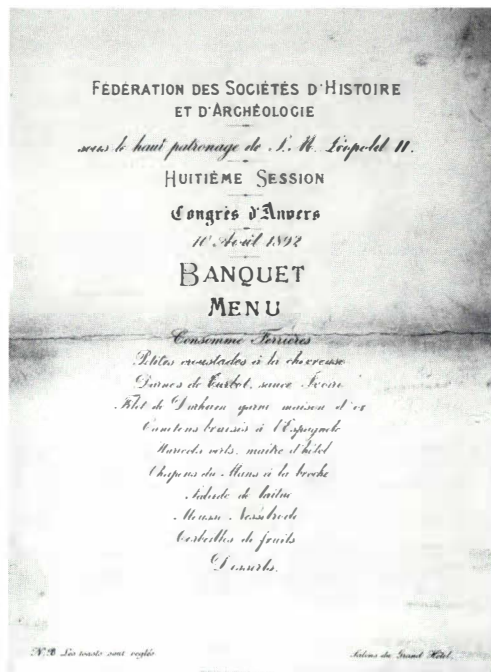 FÉDÉRATION DES SOCIÉTÉS D'HISTOIRE
ET D'ARCHÉOLOGIE
sous le haut patronage de S. M. Léopold II.
HUITIÈME SESSION
Congrès d'Anvers
10 Août 1892
BANQUET
MENU
Consommé Ferrières
Petites croustades à la chevreuse
Darnes de Turbot, sauce Ivoire
Filet de Durham garni maison d'or
Canetons braisés à l'Espagnole
Haricots verts, maître d'hôtel
Chapons du Mans à la broche
Salade de laitue
Mousse Nesselrode
Corbeilles de fruits
Desserts.
N.B Les toasts sont réglés
Salons du Grand Hôtel.